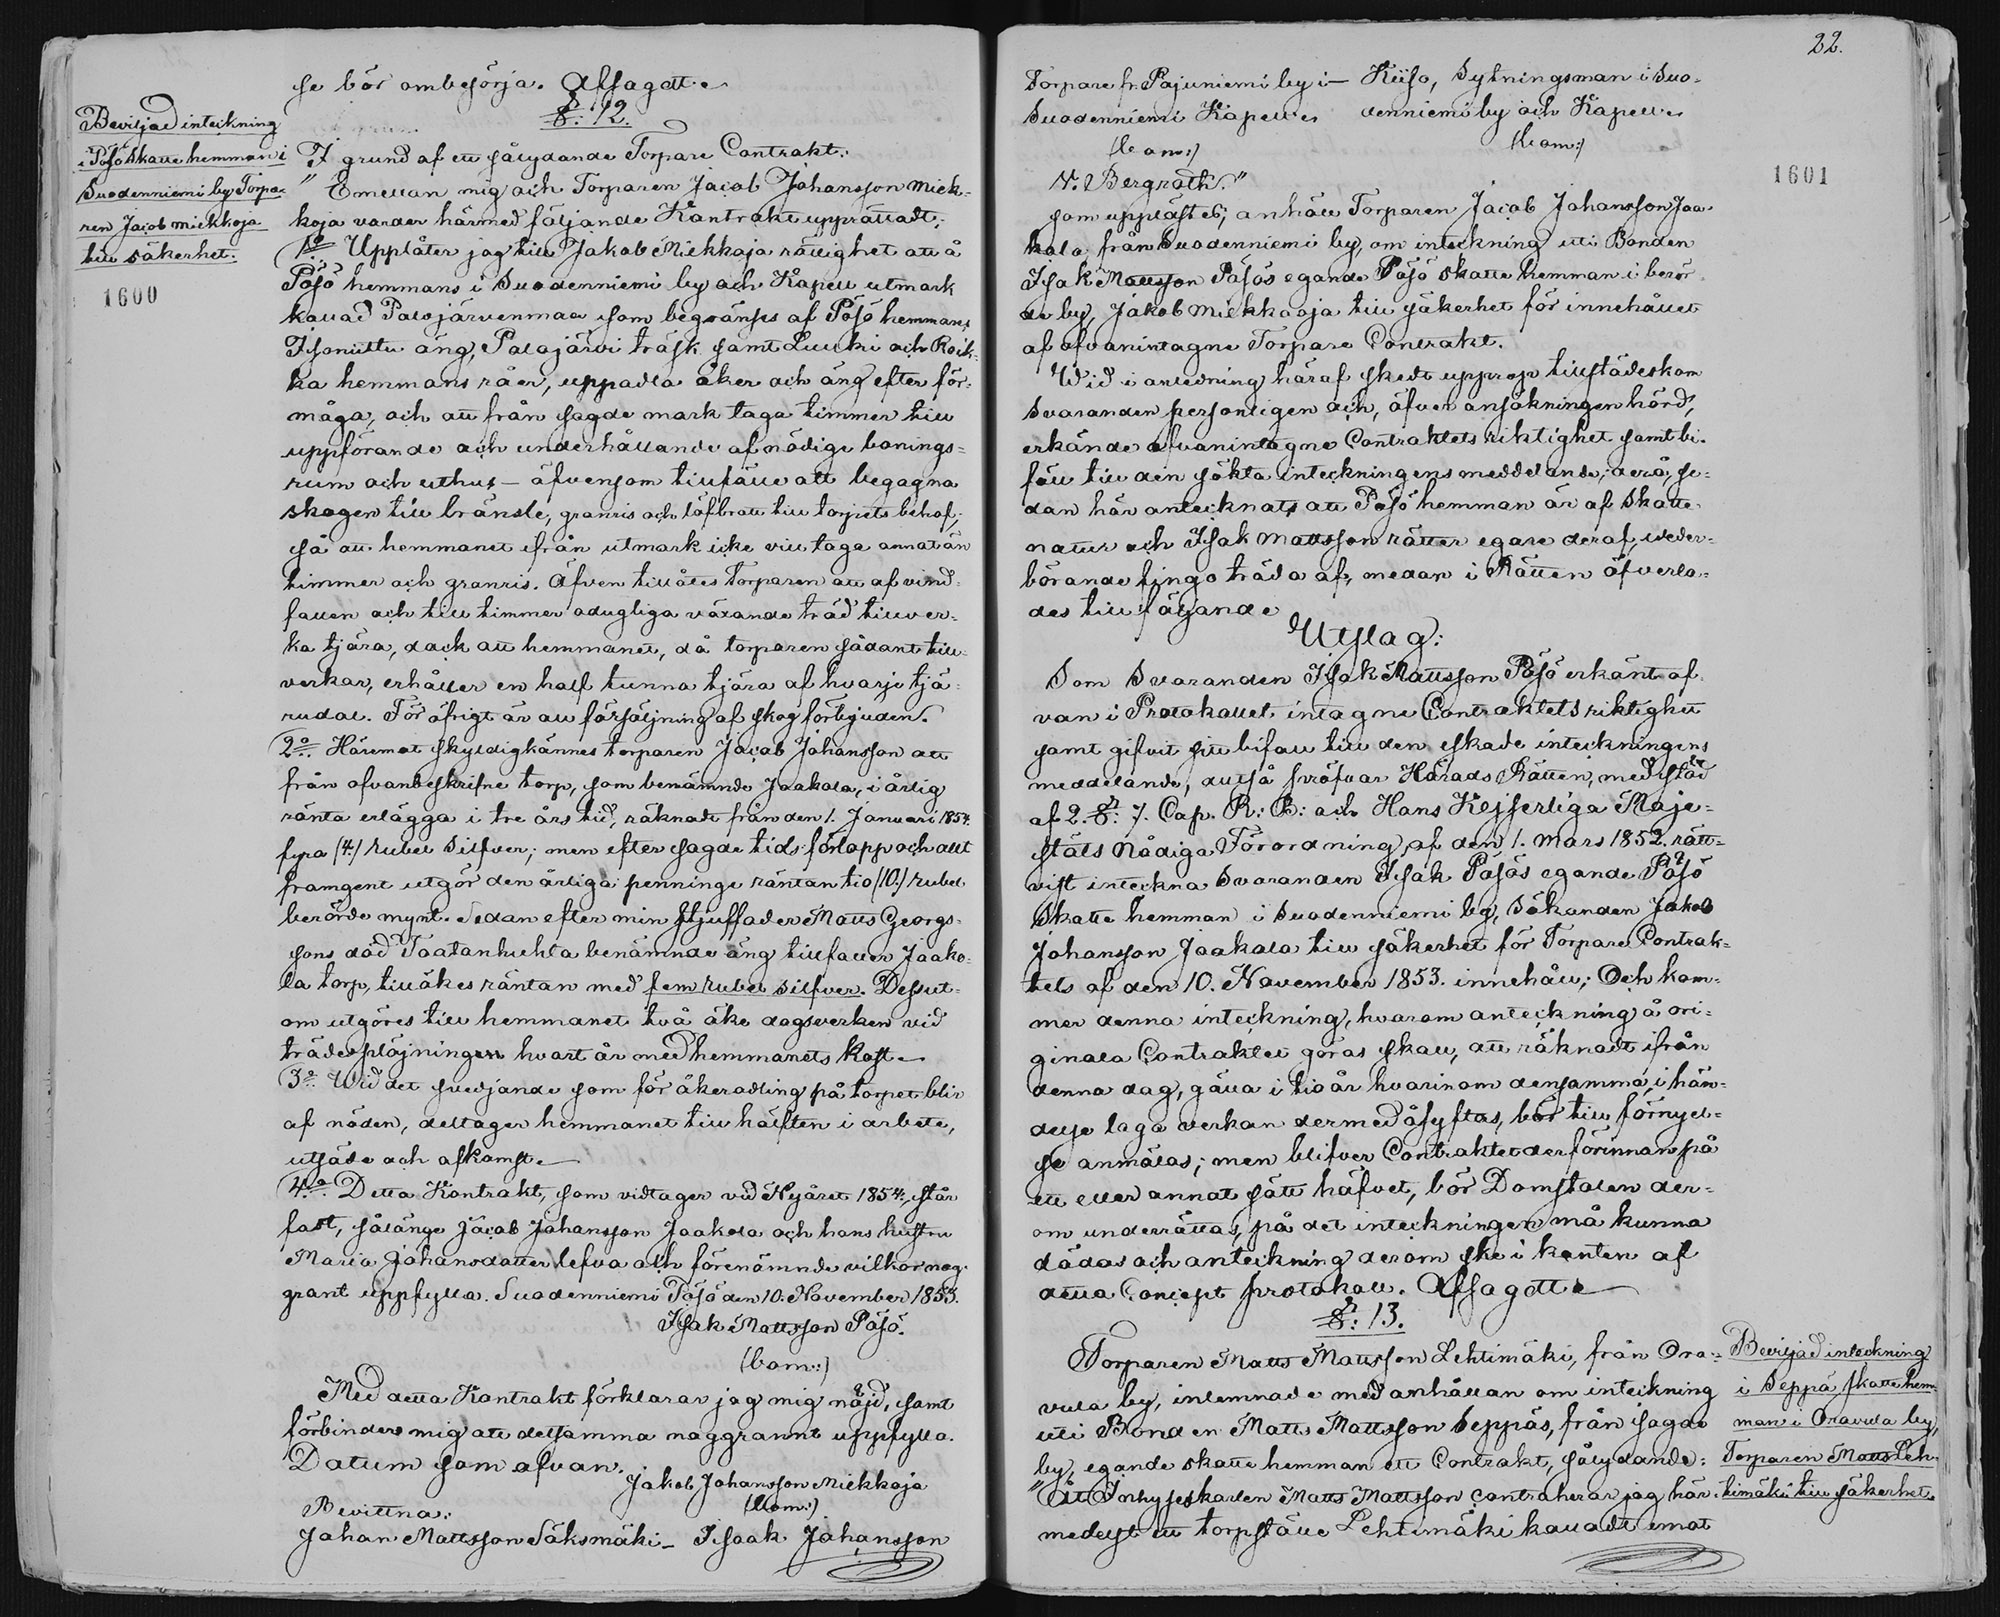 se bör ombesörja. Afsagdt.
§: 12.
Beviljad inteckning
i Påsö skatte hemman i
Suodenniemi by Torpa-
ren Jacob Miekkoja
till säkerhet.
1600
I grund af ett sålydande Torpare Contrakt:
"Emellan mig och Torparen Jacob Johansson Miek-
koja varder härmed följande Kontrakt upprättadt:
1o Upplåter jag till Jakob Miekkoja rättighet att å
Påsö hemmans i Suodenniemi by och Kapell utmark
kallad Palojärvenmaa som begränses af Påsö hemmans
Isoniittu äng, Palojärvi träsk samt Luuki och Roik-
ka hemmans råer, uppodla åker och äng efter för-
måga, och att från sagde mark taga timmer till
uppförande och underhållande af nödige bonings-
rum och uthus – äfvensom tillfälle att begagna
skogen till bränsle, granris och löfbrott till torpets behof;
så att hemmanet ifrån utmark icke vill taga annat än
timmer och granris. Äfven tillåtes Torparen att af vind-
fallen och till timmer odugliga växande träd tillver-
ka tjära, dock att hemmanet, då torparen sådant till-
verkar, erhåller en half tunna tjära af hvarje tjä-
rudal. För öfrigt är all försäljning af skog förbjuden.
2o Häremot skyldigkännes torparen Jacob Johansson att
från ofvanbeskrifne torp, som benämnde Jaakola, i årlig
ränta erlägga i tre års tid, räknadt från den 1. Januari 1854.
fyra (4.) rubel silfver; men efter sagde tids förlopp och allt
framgent utgör den årliga penninge räntan tio (10.) rubel
berörde mynt. Sedan efter min stjuffader Matts Georgs-
sons död Taatanhuhta benämnde äng tillfaller Jaako-
la torp, tillökes räntan med fem rubel silfver. Dessut-
om utgöres till hemmanet två öke dagsverken vid
trädesplöjningen hvart år med hemmanets kost.
3o Wid det svedjande som för åkerodling på torpet blir
af nöden, deltager hemmanet till hälften i arbete,
utsäde och afkomst.
4o Detta Kontrakt, som vidtager vid Nyåret 1854, står
fast, sålänge Jacob Johansson Jaakola och hans hustru
Maria Johansdotter lefva och förenämnde vilkor nog-
grant uppfylla. Suodenniemi Påsö den 10. November 1853.
Isak Mattsson Påsö.
(bom:)
Med detta Kontrakt förklarar jag mig nöjd, samt
förbinder mig att detsamma noggrannt uppfylla.
Datum som ofvan.
Jakob Johansson Miekkoja
(bom:)
Bevittna:
Johan Mattsson Säksmäki – Isaak Johansson
22.
Torpare fr. Pajuniemi by i – Kiiso, Sytningsman i Suo-
Suodenniemi Kapell. denniemi by och Kapell.
(bom:) (bom:)
V. Bergroth."
1601
som upplästes; anhöll Torparen Jacob Johansson Jaa-
kola från Suodenniemi by, om inteckning uti Bonden
Isak Mattsson Påsös egande Påsö skatte hemman i berör-
de by, Jakob Miekkooja till säkerhet för innehållet
af ofvanintagne Torpare Contrakt.
Wid i anledning häraf skedt upprop tillstädeskom
Svaranden personligen och, öfver ansökningen hörd,
erkände ofvanintagne Contraktets riktighet samt bi-
föll till den sökta inteckningens meddelande; derå, se-
dan här antecknats att Påsö hemman är af skatte-
natur och Isak Mattsson rätter egare deraf, veder-
börande fingo träda af, medan i Rätten öfverla-
des till följande
Utslag:
Som Svaranden Isak Mattsson Påsö erkänt of-
van i Protokollet intagne Contraktets riktighet
samt gifvit sitt bifall till den eskade inteckningens
meddelande, alltså pröfvar Härads Rätten, med stöd
af 2. §: 7. Cap. R: B: och Hans Kejserliga Maje-
stäts Nådiga Förordning af den 1. Mars 1852. rätt-
vist inteckna Svaranden Isak Påsös egande Påsö
skatte hemman i Suodenniemi by, Sökanden Jakob
Johansson Jaakola till säkerhet för Torpare Contrak-
tets af den 10. November 1853. innehåll; Och kom-
mer denna inteckning, hvarom anteckning å ori-
ginala Contraktet göras skall, att räknadt ifrån
denna dag, gälla i tio år hvarinom densamma, i hän-
delse laga verkan dermed åsyftas, bör till förnyel-
se anmälas; men blifver Contraktet derförinnan på
ett eller annat sätt häfvet, bör Domstolen der-
om underrättas, på det inteckningen må kunna
dödas och anteckning derom ske i kanten af
detta Concept protokoll. Afsagdt.
§: 13.
Torparen Matts Mattsson Lehtimäki, från Ora-
vula by, inlemnade med anhållan om inteckning
uti Bonden Matts Mattsson Seppäs, från sagde
by, egande skatte hemman ett Contrakt, sålydande:
"Åt Inhyseskarlen Matts Mattsson contraherar jag här-
medelst ett torpställe Lehtimäki kalladt emot
Beviljad inteckning
i Seppä skatte hem-
man i Oravula by,
Torparen Matts Leh-
timäki till säkerhet.